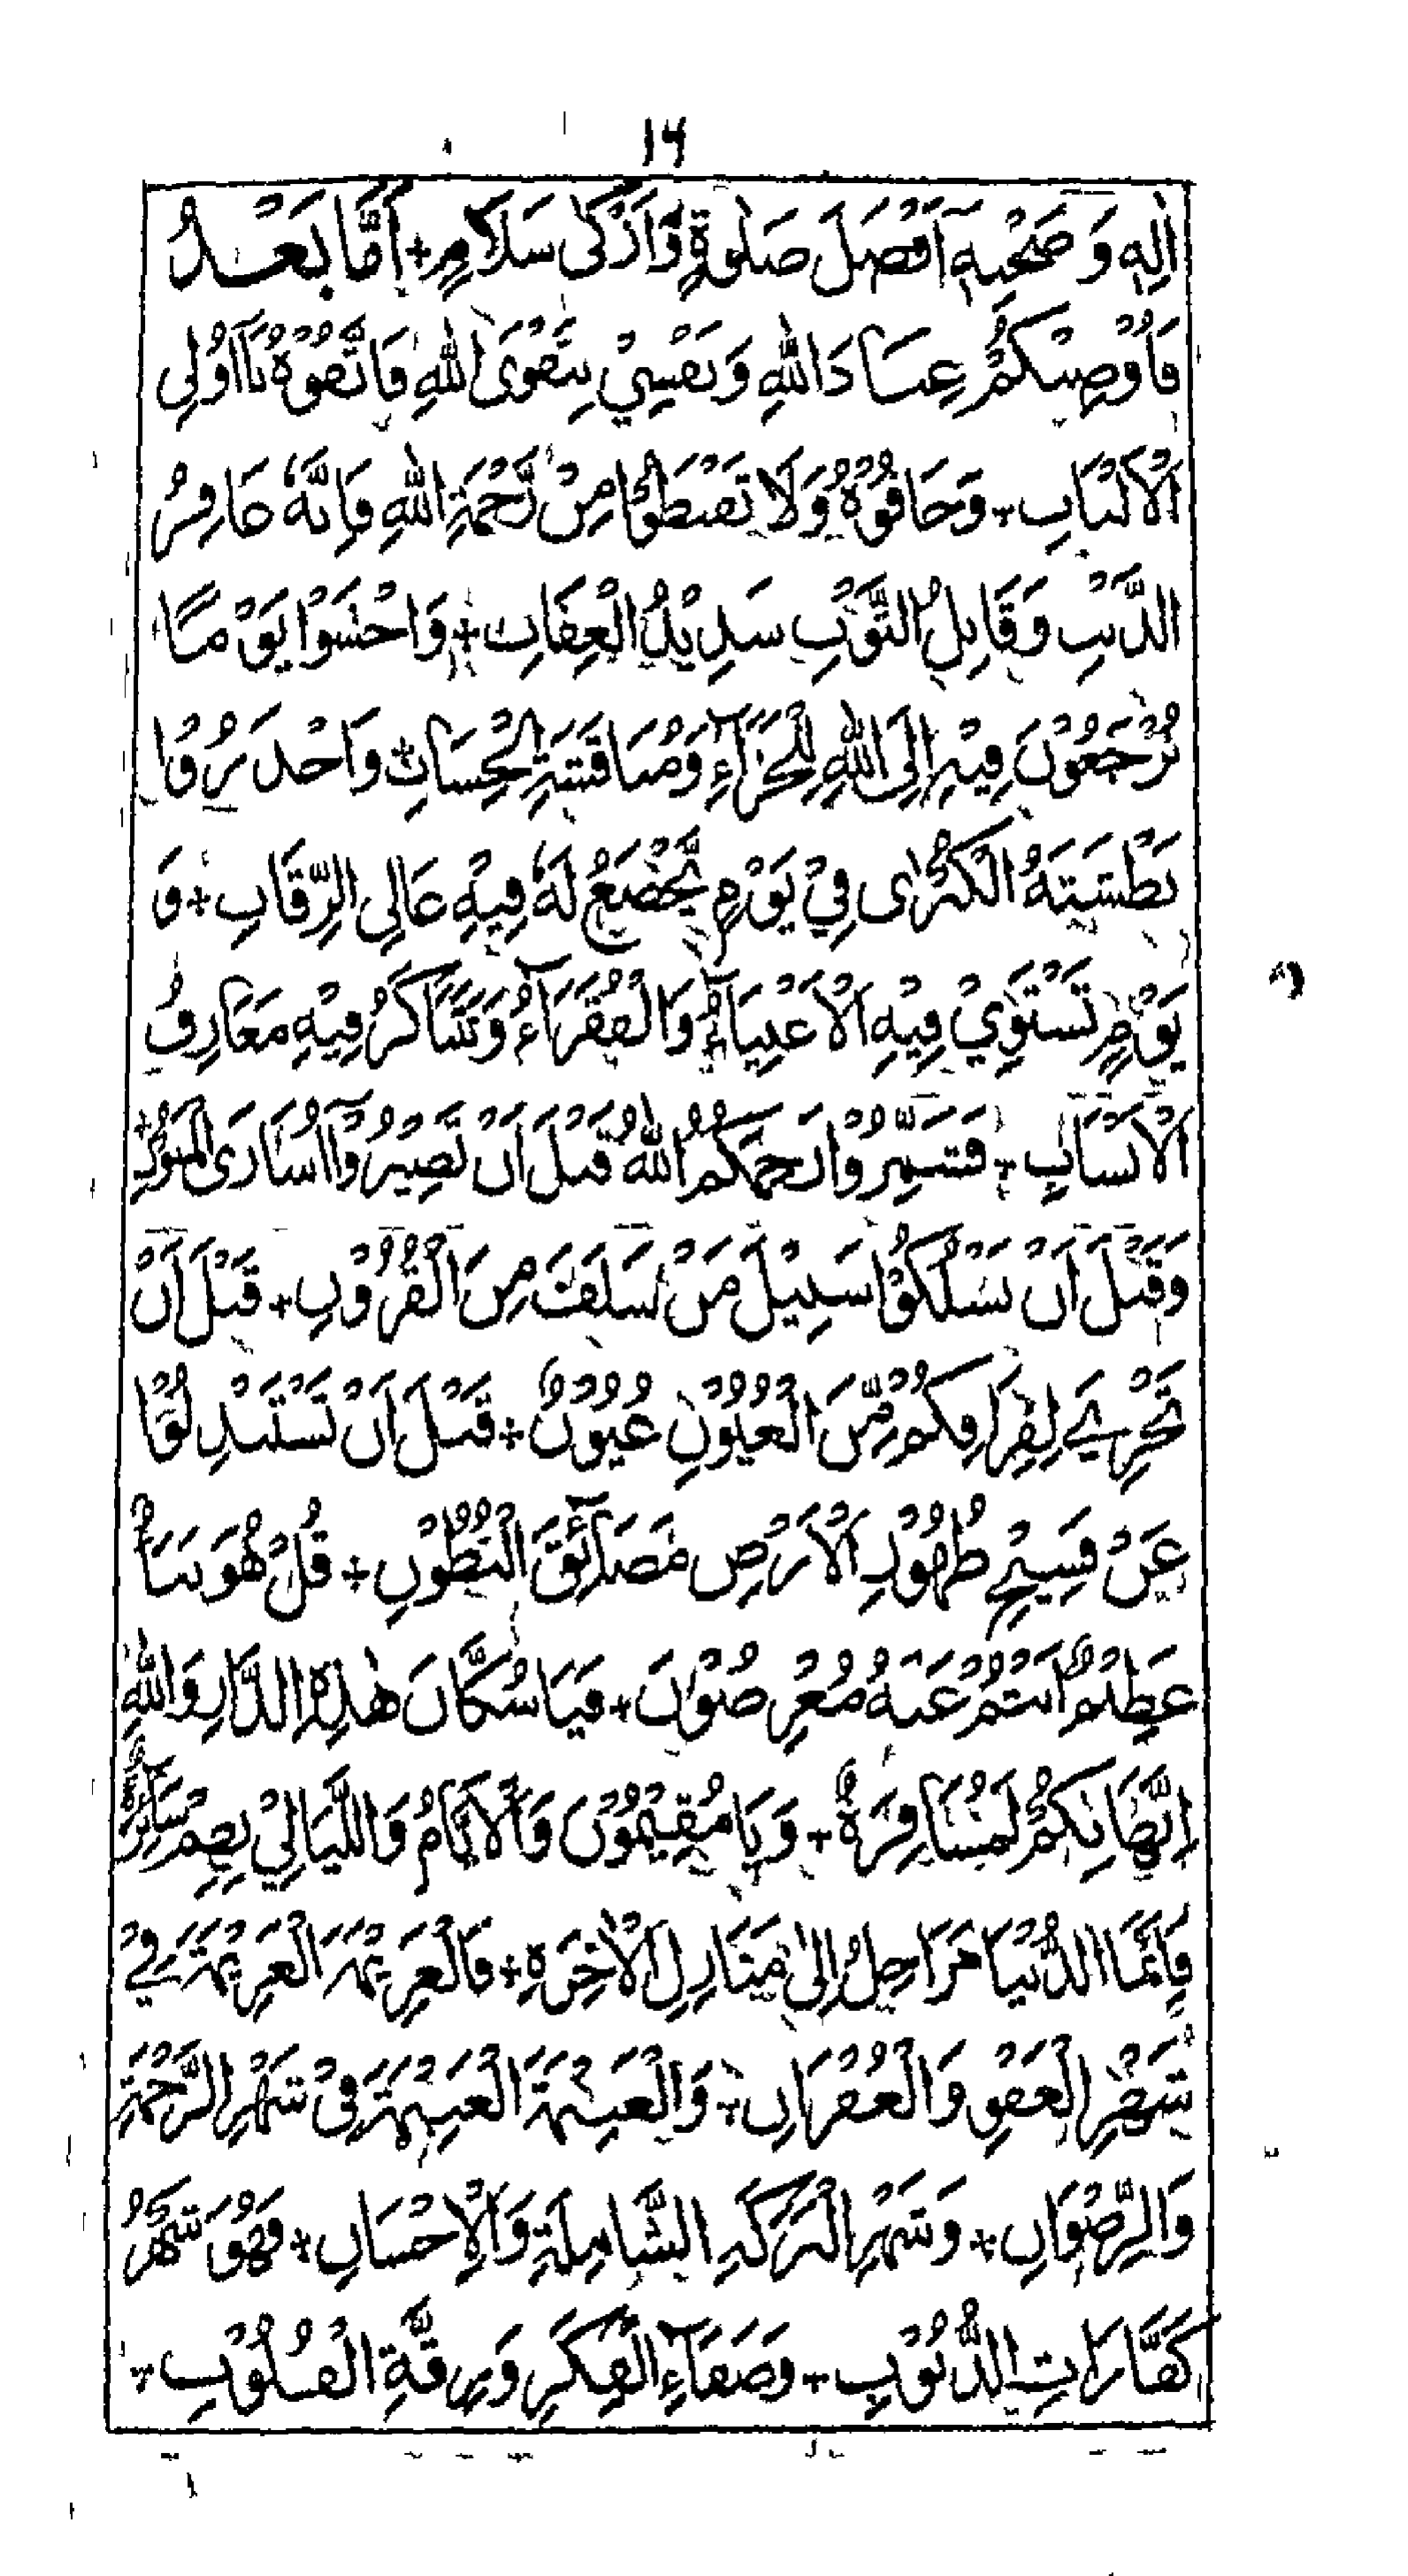 14
اٰلِهٖ وَصَحْبِهٖٓ اَفْضَلَ صَلٰوةٍ وَّاَزْكٰى سَلَامٍ + اَمَّا بَعْدُ
فَاُوْصِيْكُمْ عِبَادَ اللّٰهِ وَنَفْسِيْ بِتَقْوَى اللّٰهِ فَاتَّقُوْهُ يَا اُولِي
الْاَلْبَابِ + وَخَافُوْهُ وَلَا تَقْنَطُوْا مِنْ رَّحْمَةِ اللّٰهِ فَاِنَّهٗ غَافِرُ
الذَّنْبِ وَقَابِلُ التَّوْبِ شَدِيْدُ الْعِقَابِ + وَاخْشَوْا يَوْمًا
تُرْجَعُوْنَ فِيْهِ اِلَى اللّٰهِ لِلْجَزَآءِ وَمُنَاقَشَةِ الْحِسَابِ + وَاحْذَرُوْا
بَطْشَتَهُ الْكُبْرٰى فِيْ يَوْمٍ تَّخْضَعُ لَهٗ فِيْهِ عَالِي الرِّقَابِ + وَ
يَوْمٍ تَسْتَوِيْ فِيْهِ الْاَغْنِيَآءُ وَالْفُقَرَآءُ وَتَتَنَاكَرُ فِيْهِ مَعَارِفُ
الْاَنْسَابِ + فَتَشَمَّرُوْا رَحِمَكُمُ اللّٰهُ قَبْلَ اَنْ تَصِيْرُوْٓا اُسَارَى الْمَنُوْنِ +
وَقَبْلَ اَنْ تَسْلُكُوْا سَبِيْلَ مَنْ سَلَفَ مِنَ الْقُرُوْنِ + قَبْلَ اَنْ
تَجْرِيَ لِفِرَاقِكُمْ مِّنَ الْعُيُوْنِ عُيُوْنٌ + قَبْلَ اَنْ تَسْتَبْدِلُوْا
عَنْ فَسِيْحِ ظُهُوْرِ الْاَرْضِ مَضَآئِقَ الْبُطُوْنِ + قُلْ هُوَ نَبَأٌ
عَظِيْمٌ اَنْتُمْ عَنْهُ مُعْرِضُوْنَ + فَيَا سُكَّانَ هٰذِهِ الدَّارِ وَاللّٰهِ
اِنَّهَا بِكُمْ لَمُسَافِرَةٌ + وَيَا مُقِيْمُوْنَ وَالْاَيَّامُ وَاللَّيَالِيْ بِهِمْ سَآئِرَةٌ
فَاِنَّمَا الدُّنْيَا مَرَاحِلُ اِلٰى مَنَازِلِ الْاٰخِرَةِ + فَالْعَزِيْمَةَ الْعَزِيْمَةَ فِيْ
شَهْرِ الْعَفْوِ وَالْغُفْرَانِ + وَالْغَنِيْمَةَ الْغَنِيْمَةَ فِيْ شَهْرِ الرَّحْمَةِ
وَالرِّضْوَانِ + وَشَهْرِ الْبَرَكَةِ الشَّامِلَةِ وَالْاِحْسَانِ + فَهُوَ شَهْرُ
كَفَّارَاتِ الذُّنُوْبِ + وَصَفَآءِ الْفِكَرِ وَرِقَّةِ الْقُلُوْبِ +